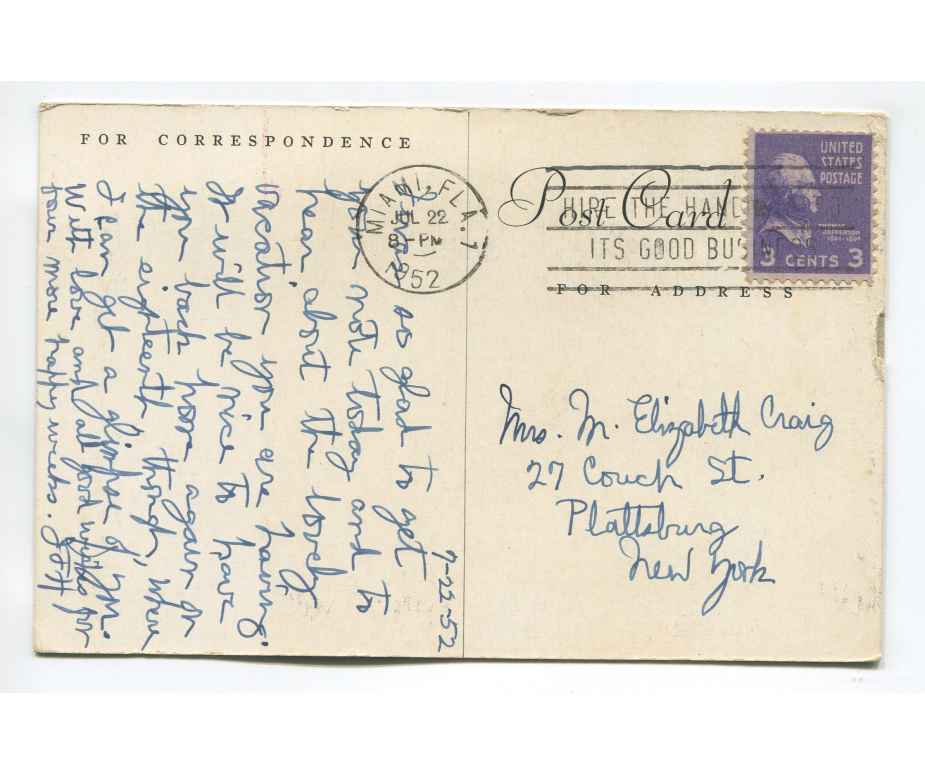 FOR CORRESPONDENCE
7-22-52
I was so glad to get
your note today and to
hear about the lovely
vacation you are having.
It will be nice to have
you back here again on
the eighteenth
I can get a glimpse of you.
With love and all good wishes for
more happy weeks.
MIAMI, FLA. 1
JUL 22
8-PM
1952
Post Card
HIRE THE
ITS GOOD
FOR ADDRESS
UNITED
STATES
POSTAGE
THOMAS
JEFFERSON
3 CENTS 3
Mrs. M. Elizabeth Craig
27 Couch St.
Plattsburg
New York